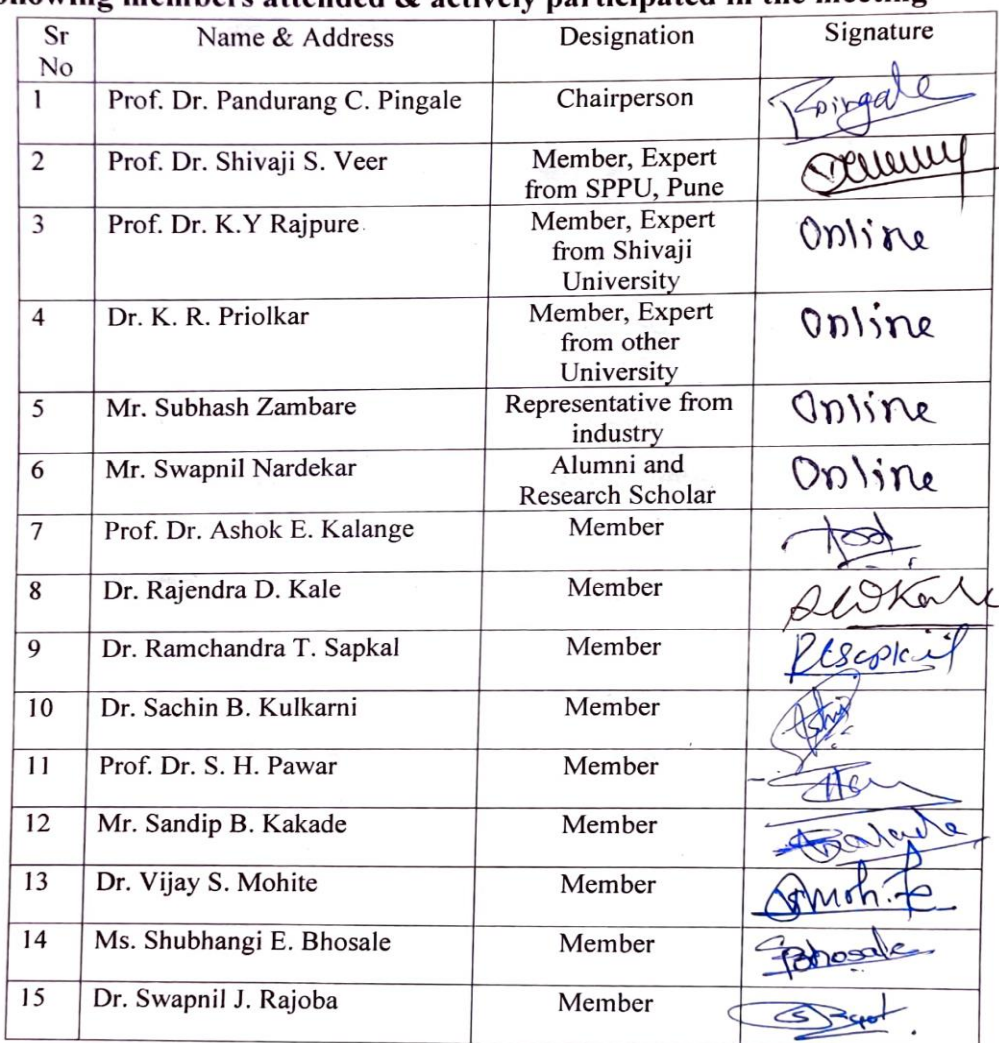 owing members attended & actively participated in the meeting
Sr No Name & Address Designation Signature
1 Prof. Dr. Pandurang C. Pingale Chairperson Pingale
2 Prof. Dr. Shivaji S. Veer Member, Expert from SPPU, Pune
3 Prof. Dr. K.Y Rajpure Member, Expert from Shivaji University Online
4 Dr. K. R. Priolkar Member, Expert from other University Online
5 Mr. Subhash Zambare Representative from industry Online
6 Mr. Swapnil Nardekar Alumni and Research Scholar Online
7 Prof. Dr. Ashok E. Kalange Member
8 Dr. Rajendra D. Kale Member
9 Dr. Ramchandra T. Sapkal Member
10 Dr. Sachin B. Kulkarni Member
11 Prof. Dr. S. H. Pawar Member
12 Mr. Sandip B. Kakade Member
13 Dr. Vijay S. Mohite Member
14 Ms. Shubhangi E. Bhosale Member Bhosale
15 Dr. Swapnil J. Rajoba Member